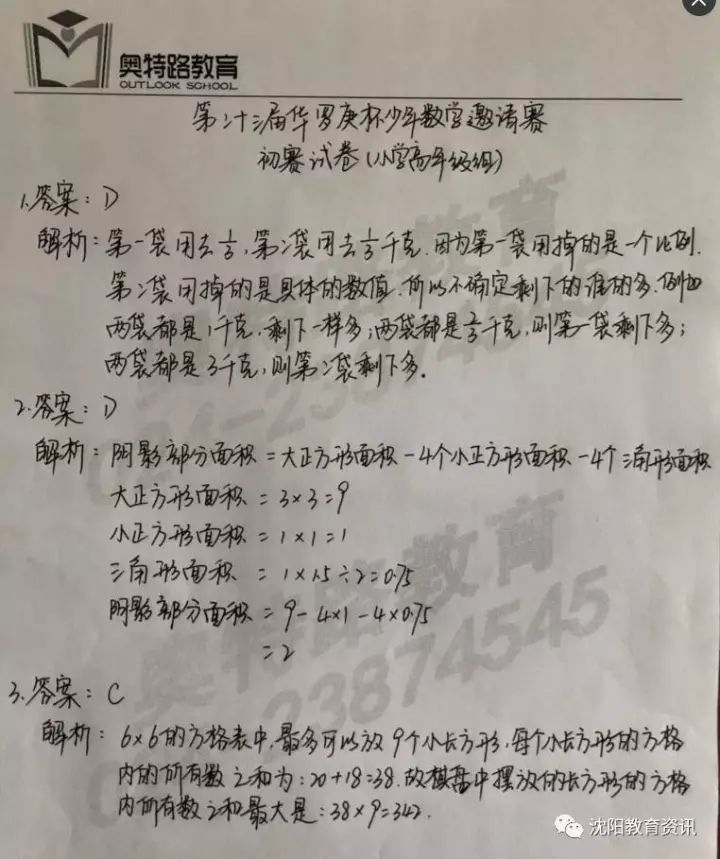 奥特路教育
OUTLOOK SCHOOL
第二十三届华罗庚杯少年数学邀请赛
初赛试卷(小学高年级组)
1.答案：D
解析：第一袋用去1/3,第二袋用去1/3千克.因为第一袋用掉的是一个比例.
第二袋用掉的是具体的数值.所以不确定剩下的谁的多.例如
两袋都是1千克,剩下一样多;两袋都是千克,则第一袋剩下多;
两袋都是3千克,则第二袋剩下多.
2.答案：D
解析：阴影部分面积=大正方形面积-4个小正方形面积-4个三角形面积
大正方形面积=3×3=9
小正方形面积=1×1=1
三角形面积=1×1.5÷2=0.75
阴影部分面积=9-4×1-4×0.75
=2
3.答案：C
解析：6×6的方格表中,最多可以放9个小长方形,每个小长方形的方格
内的所有数之和为:20+18=38.故棋盘中摆放的长方形的方格
内所有数之和最大是:38×9=342.
奥特路教育
23874545
沈阳教育资讯